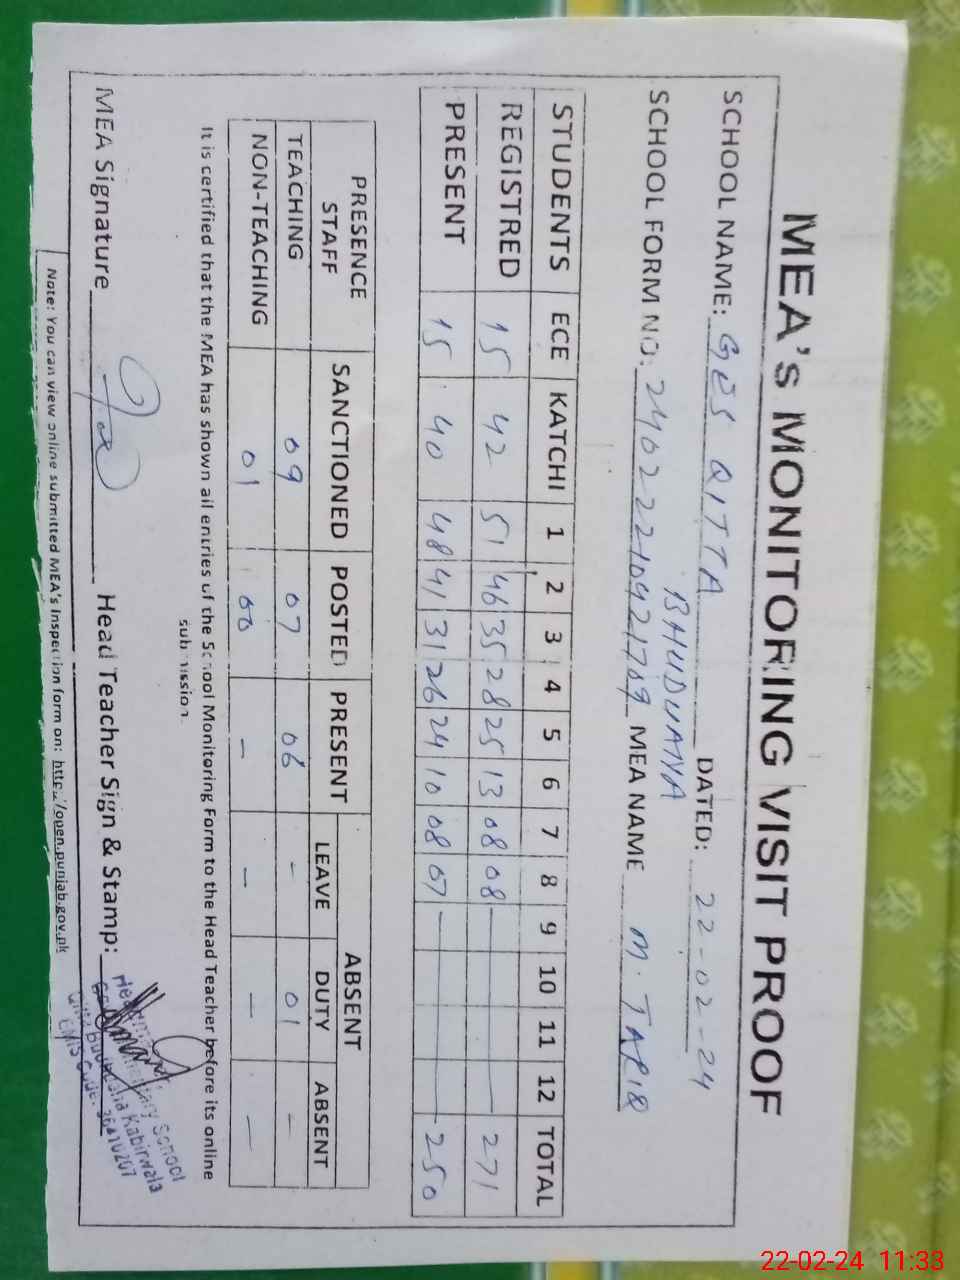 MEA's MONITORING VISIT PROOF
SCHOOL NAME: GES QITTA DATED: 22-02-24
BHUDUANA
SCHOOL FORM NO: MEA NAME M. TARIQ
STUDENTS ECE KATCHI 1 2 3 4 5 6 7 8 9 10 11 12 TOTAL
REGISTRED 15 42 51 46 35 28 25 13 08 08 271
PRESENT 15 40 48 41 31 26 24 10 08 07 250
PRESENCE STAFF SANCTIONED POSTED PRESENT ABSENT
LEAVE DUTY ABSENT
TEACHING 09 07 06 - 01 -
NON-TEACHING 01 00 - - - -
It is certified that the MEA has shown all entries of the School Monitoring Form to the Head Teacher before its online
submission.
MEA Signature Head Teacher Sign & Stamp:
Elementary School
Kabirwala
EMIS Code: 36410207
Note: You can view online submitted MEA's Inspection form on: http://open.punjab.gov.pk
22-02-24 11:33